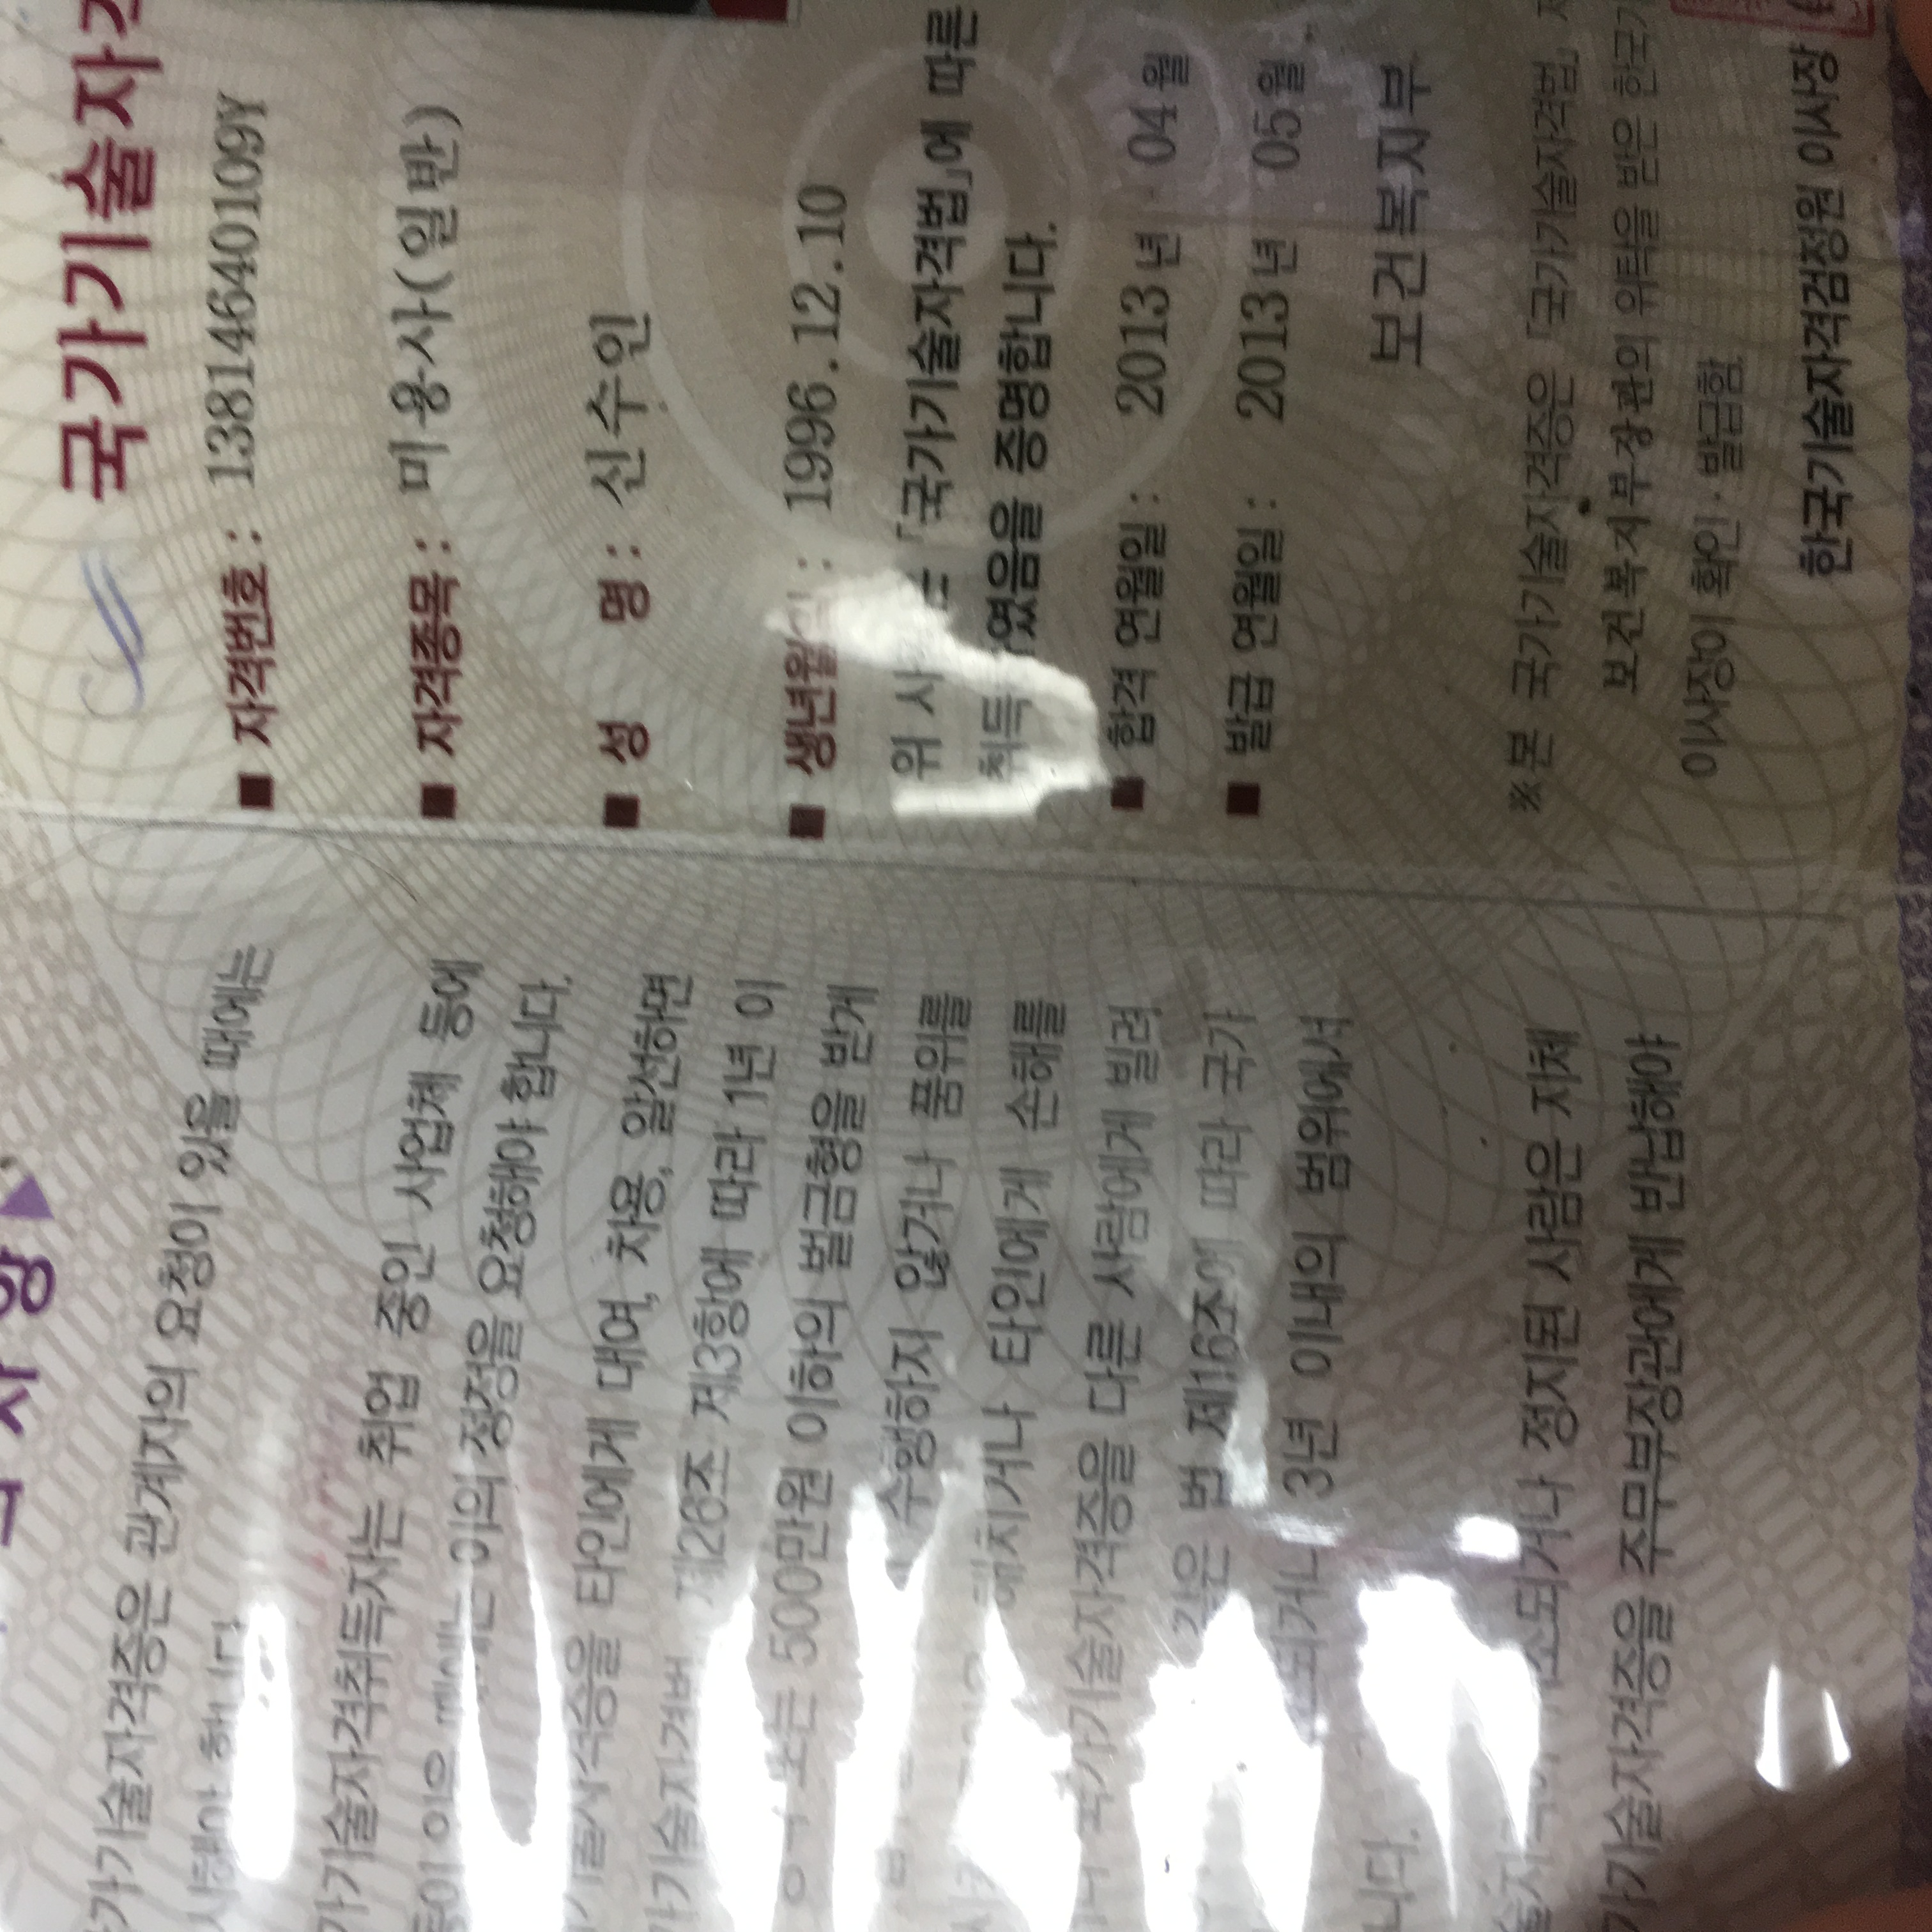 국가기술자
■ 자격번호 : 13814640109Y
■ 자격종목 : 미용사(일반)
■ 성 명 : 신수인
■ 생년월 : 1996.12.10
위 사 「국가기술자격법」에 따른
취득 였음을 증명합니다.
■ 합격 연월일 : 2013 년 04 월
■ 발급 연월일 : 2013 년 05 월
보건복지부
※본 국가기술자격증은 「국가기술자격법」
보건복지부장관의 위탁을 받은 한국기
이사장이 확인·발급함
한국기술자격검정원 이사장
가기술자격증은 관계자의 요청이 있을 때에는
가기술자격취득자는 취업 중인 사업체 등에
이의 정정을 요청해야 합니다.
타인에게 대여, 차용, 알선하면
가기술자격법 제26조 제3항에 따라 1년 이
또는 500만원 이하의 벌금형을 받게
수행하지 않거나 품위를
해치거나 타인에게 손해를
국가기술자격증을 다른 사람에게 빌려
같은 법 제16조에 따라 국가
되거나 3년 이내의 범위에서
니다.
소되거나 정지된 사람은 지체
가기술자격증을 주무부장관에게 반납해야